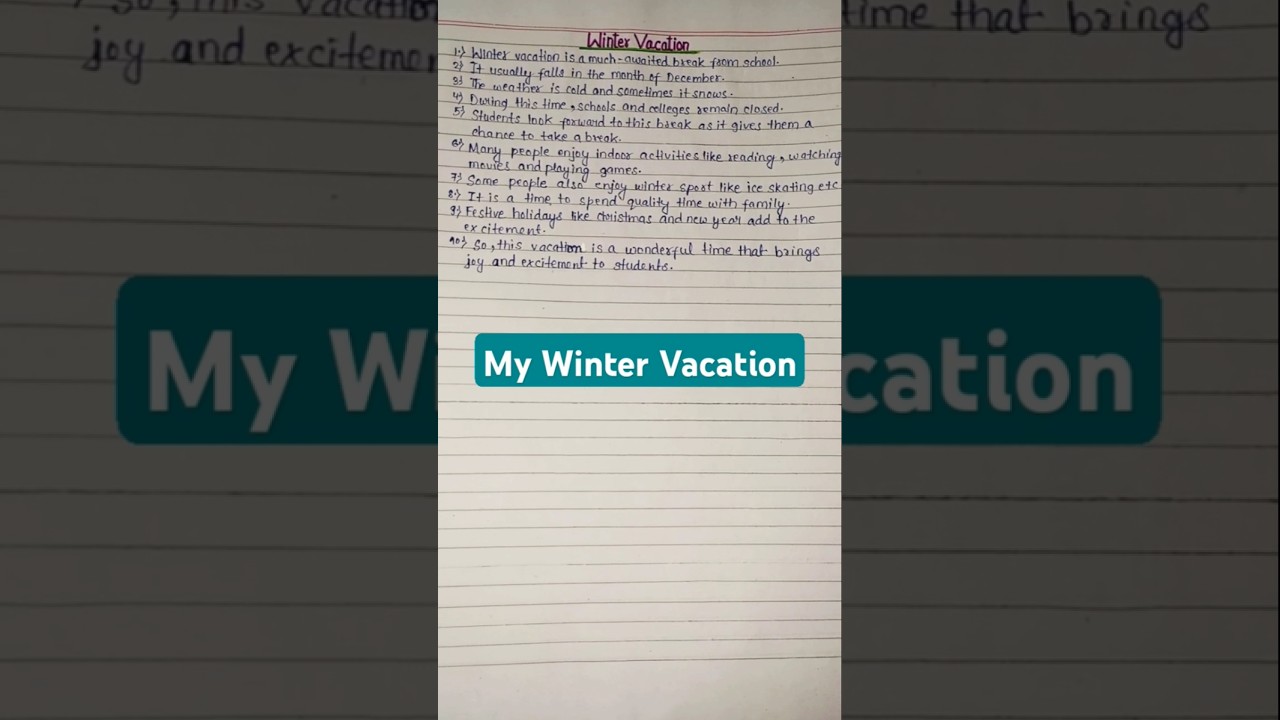 Winter Vacation
1.) Winter vacation is a much-awaited break from school.
2) It usually falls in the month of December.
3) The weather is cold and sometimes it snows.
4) During this time, schools and colleges remain closed.
5) Students look forward to this break as it gives them a
chance to take a break.
6) Many people enjoy indoor activities like reading, watching
movies and playing games.
7) Some people also enjoy winter sport like ice skating etc
8) It is a time, to spend quality time with family.
9) Festive holidays like christmas and new year add to the
excitement.
10) So, this vacation is a wonderful time that brings
joy and excitement to students.
My Winter Vacation
So, this vacation
time that brings
joy and excitemen
My W
cation